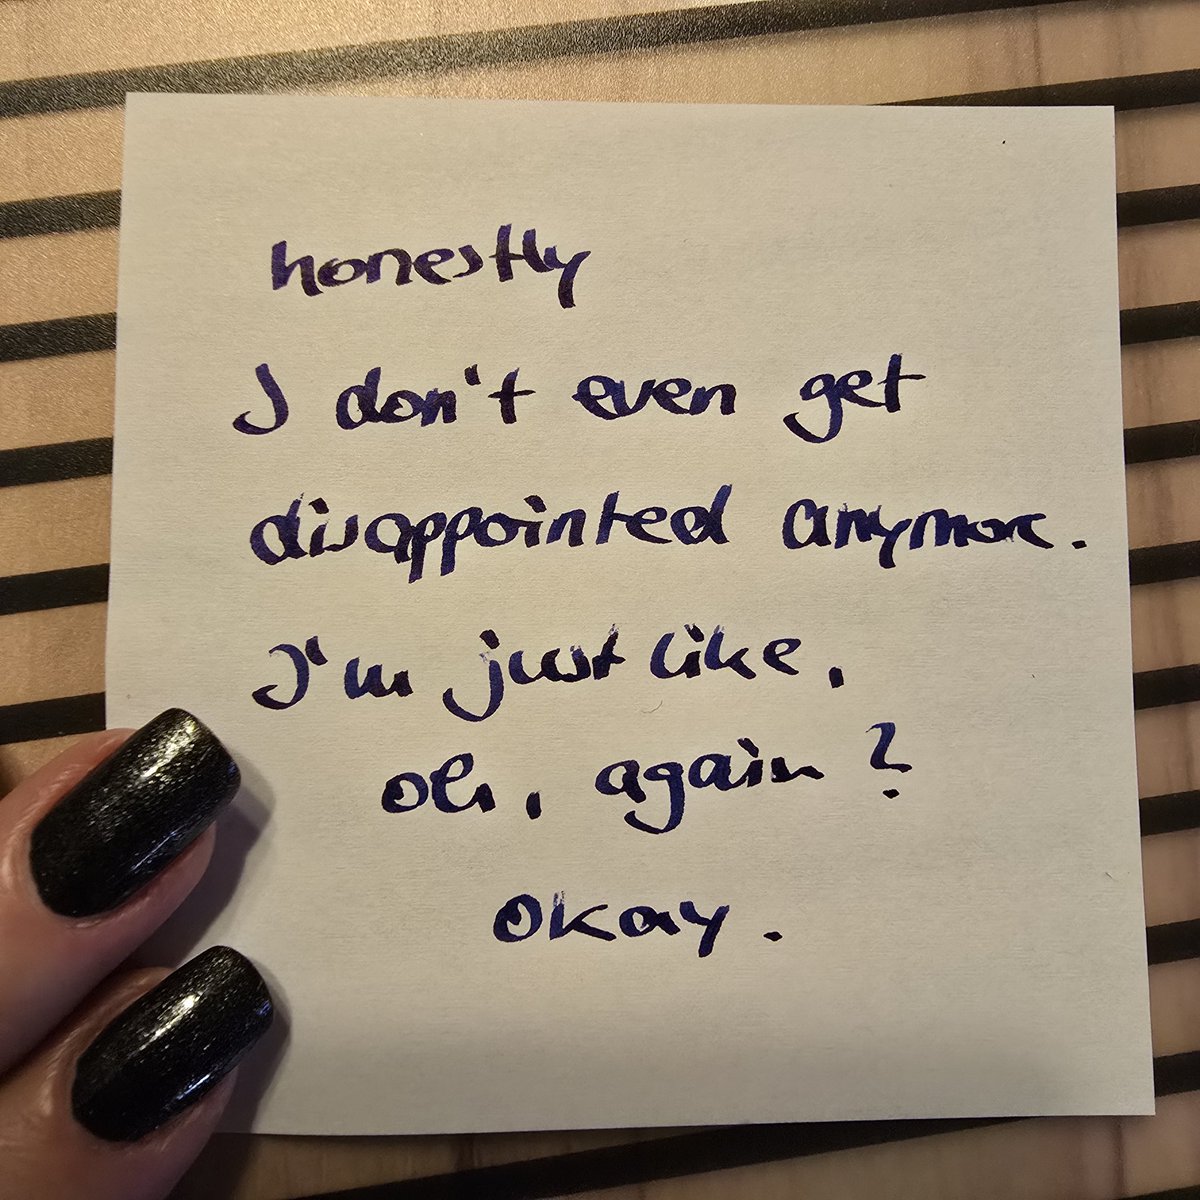 honestly
I don't even get
disappointed anymore.
I'm just like,
oh, again?
okay.